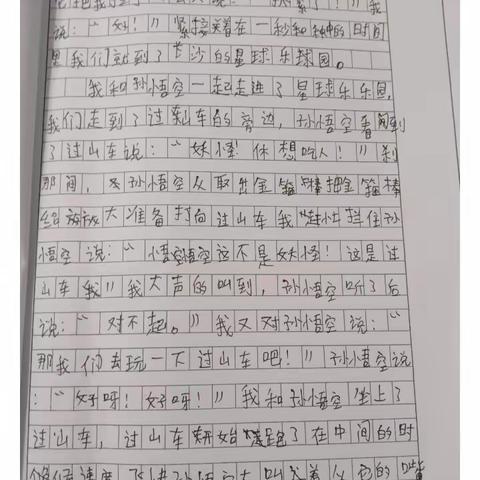 说：“好！”紧接着在一秒种的时间
里我们就到了长沙的星球乐球园。
我和孙悟空一起走进了星球乐乐园，
我们走到了过山车的旁边，孙悟空看到
了过山车说：“妖怪！休想吃人！”刹
那间，孙悟空从取出金箍棒把金箍棒
给放大准备打向过山车我赶忙拦住孙
悟空说：“悟空悟空这不是妖怪！这是过
山车我”我大声的叫到，孙悟空听了后
说：“对不起。”我又对孙悟空说：“
那我们去玩一下过山车吧！”孙悟空说
：“好呀！好呀！”我和孙悟空坐上了
过山车，过山车开始跑了在中间的时
候速度